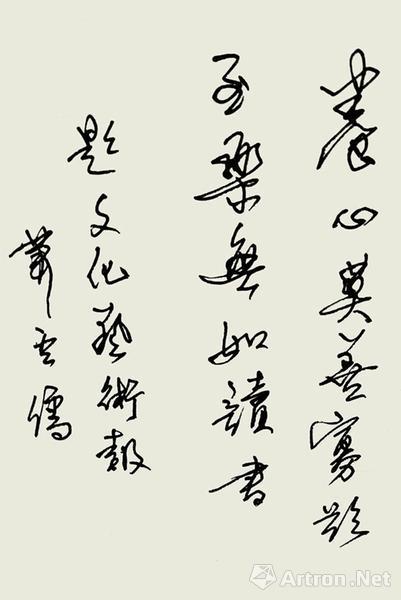 養心莫善寡欲
至樂無如讀書
題文化藝術報
蕭雲儒
Artron.Net